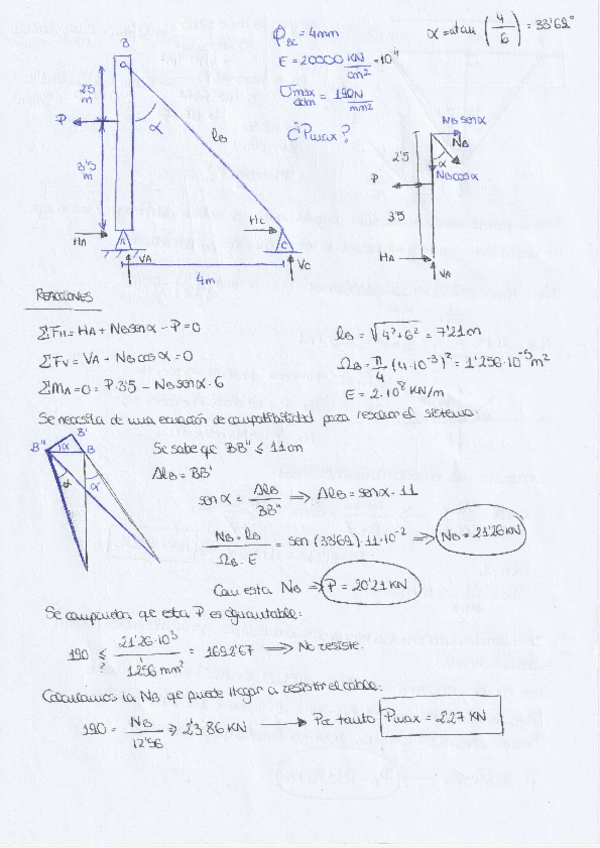 B
ϕBC = 4mm
α = atan (4/6) = 33'69°
E = 20000 KN/cm² = 10⁴
σmax adm = 190 N/mm²
¿Pmax?
2'5 m
P
α
lB
3'5 m
HA
A
VA
4m
HC
C
VC
NB senα
NB
α
NB cosα
2'5
P
3'5
HA
VA
REACCIONES
ΣFH = HA + NB senα - P = 0
ΣFV = VA - NB cosα = 0
ΣMA = 0 = P·3'5 - NB senα·6
lB = √4²+6² = 7'21 m
ΩB = π/4 (4·10⁻³)² = 1'256·10⁻⁵ m²
E = 2·10⁸ KN/m
Se necesita de una ecuación de compatibilidad para resolver el sistema:
B'
B''
α
B
α
α
Se sabe qe BB'' ≤ 11 cm
ΔlB = BB'
senα = ΔlB/BB'' ⟹ ΔlB = senα·11
NB·lB/ΩB·E = sen (33'69)·11·10⁻² ⟹ NB = 21'26 KN
Con esta NB ⟹ P = 20'21 KN
Se comprueba qe esta P es aguantable:
190 ≤? 21'26·10³/12'56 mm² = 1692'67 ⟹ No resiste.
Calculamos la NB qe puede llegar a resistir el cable:
190 = NB/12'56 ⟹ 2'386 KN ⟶ Por tanto Pmax = 2'27 KN